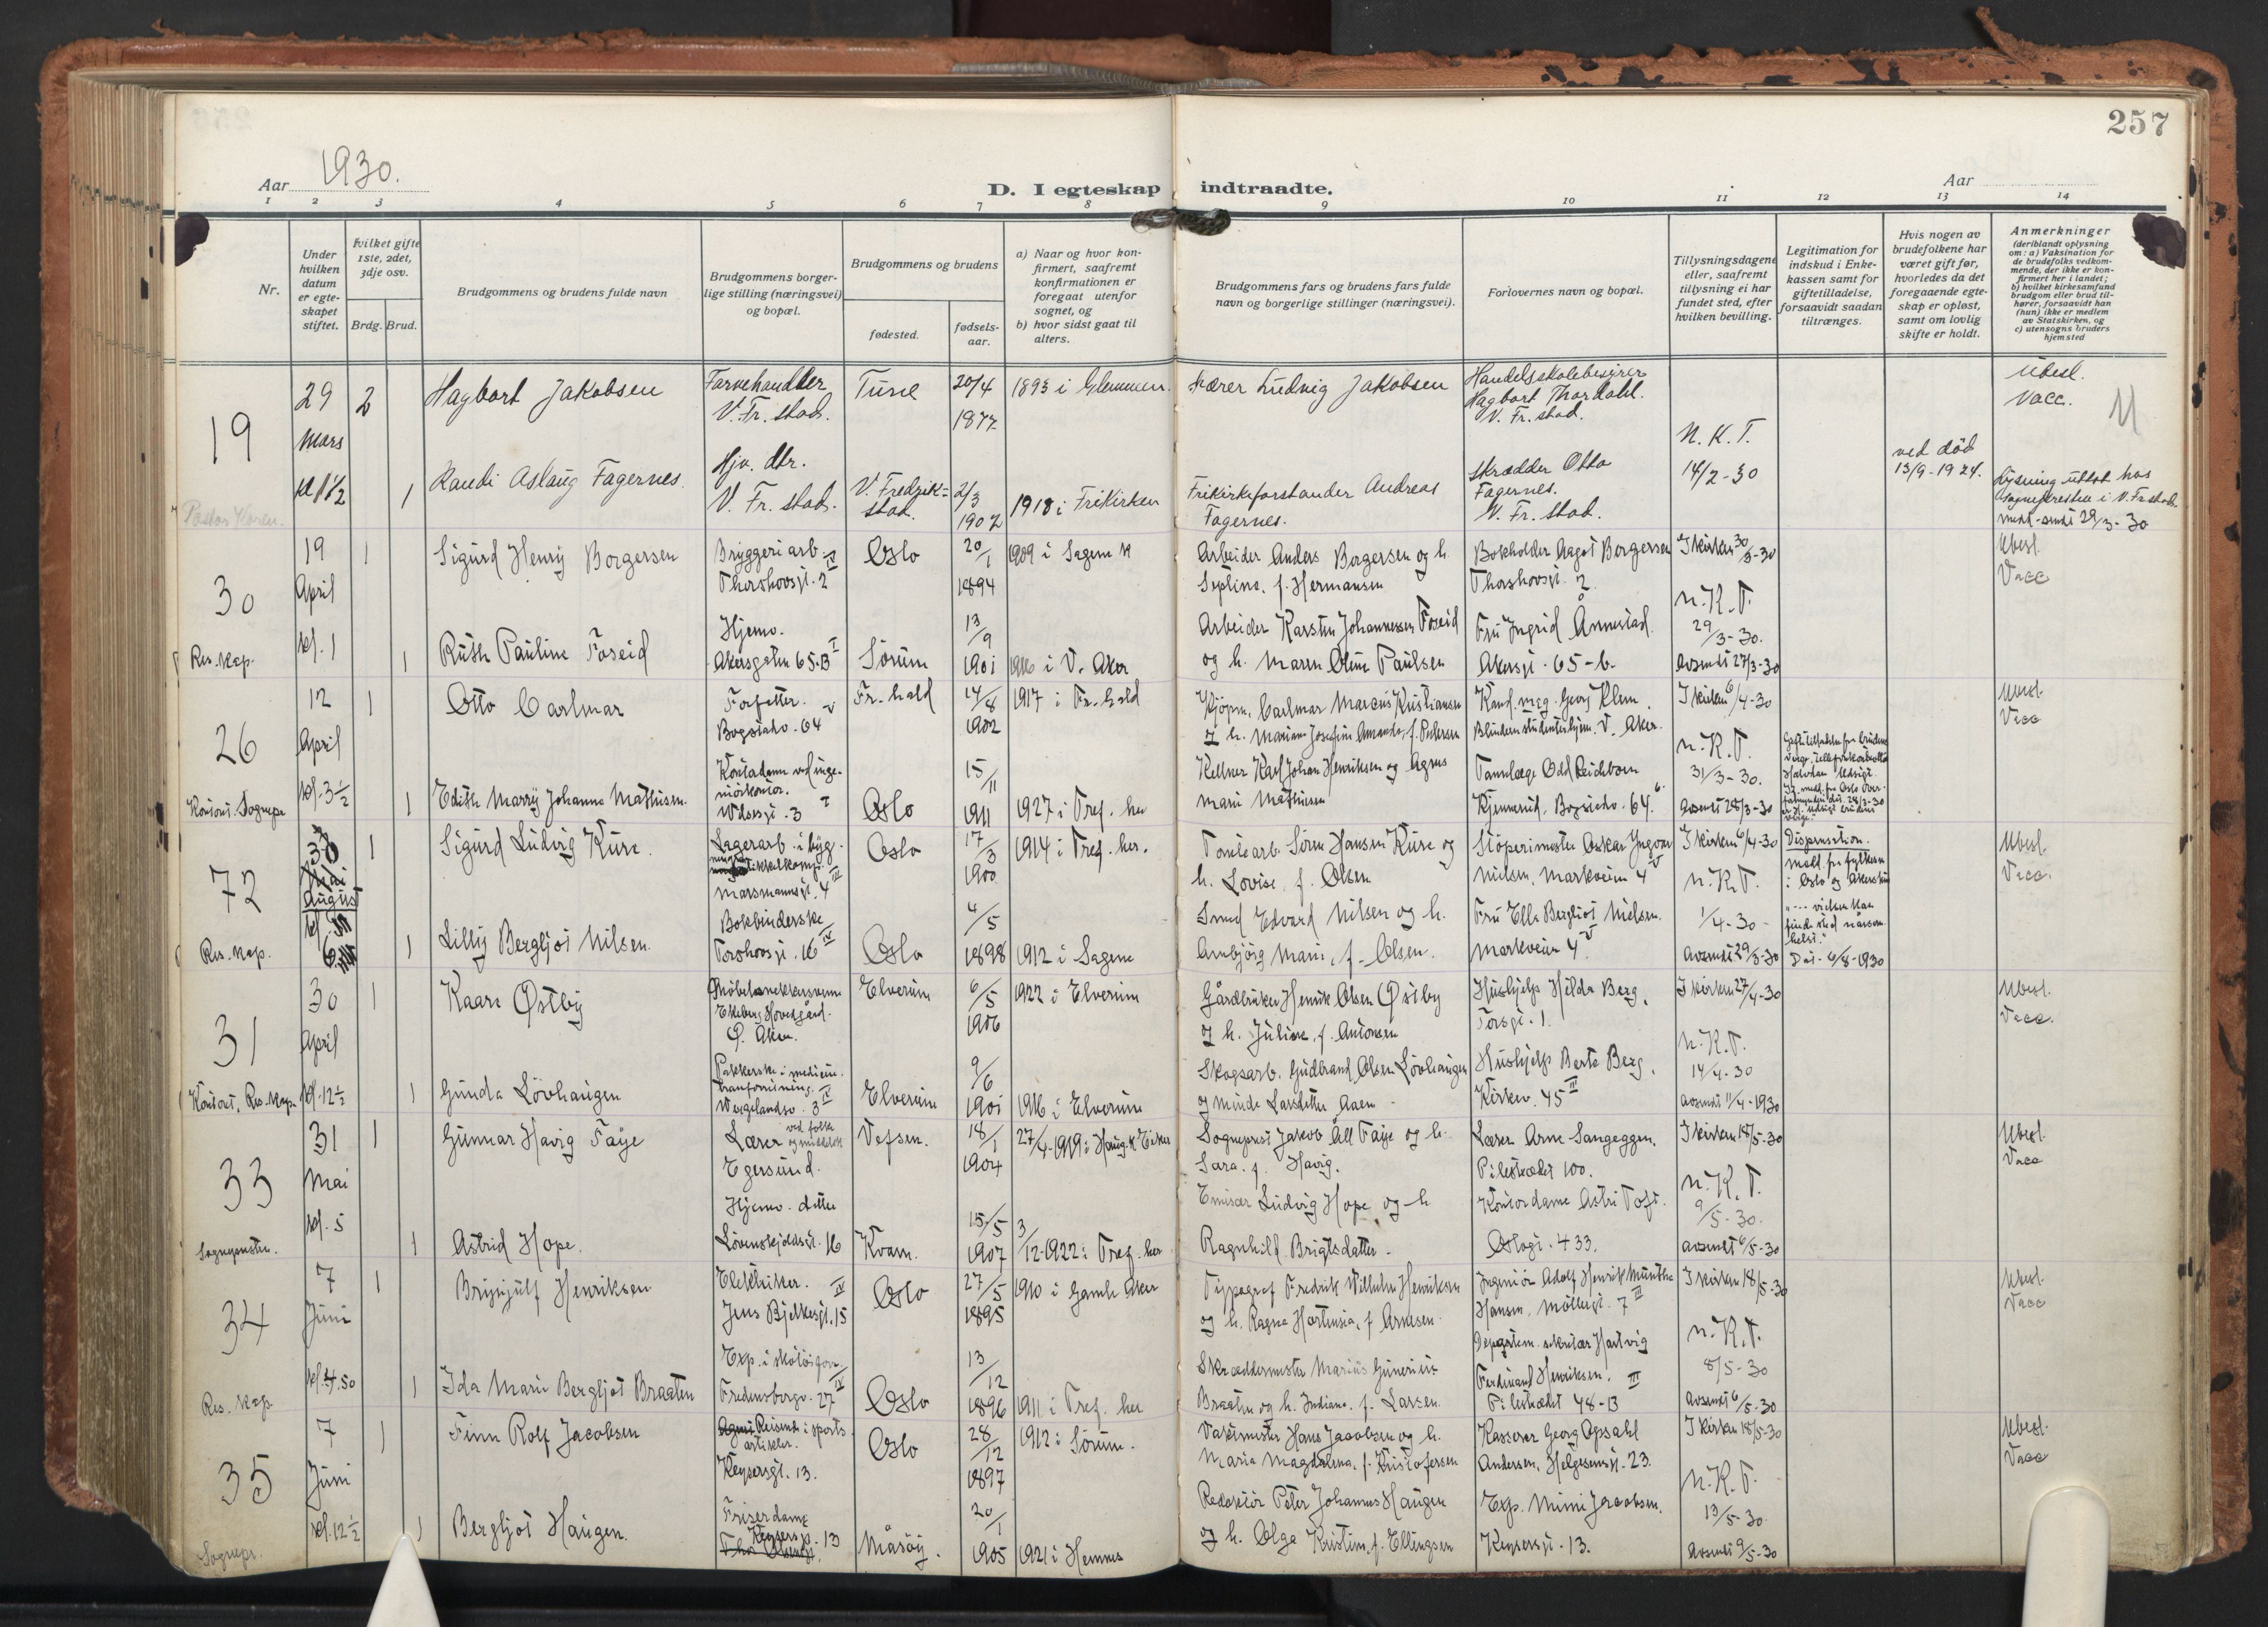 257
Aar 1930.
D. I egteskap indtraadte.
Aar
1 2 3 4 5 6 7 8 9 10 11 12 13 14
Nr.
Under hvilken datum er egteskapet stiftet.
Hvilket gifte 1ste, 2det, 3dje osv.
Brdg. Brud.
Brudgommens og brudens fulde navn
Brudgommens borgerlige stilling (næringsvei) og bopæl.
Brudgommens og brudens
fødested.
fødselsaar.
a) Naar og hvor konfirmert, saafremt konfirmationen er foregaat utenfor sognet, og
b) hvor sidst gaat til alters.
Brudgommens fars og brudens fars fulde navn og borgerlige stillinger (næringsvei).
Forlovernes navn og bopæl.
Tillysningsdagene eller, saafremt tillysning ei har fundet sted, efter hvilken bevilling.
Legitimation for indskud i Enkekassen samt for giftetilladelse, forsaavidt saadan tiltrænges.
Hvis nogen av brudefolkene har været gift før, hvorledes da det foregaaende egteskap er opløst, samt om lovlig skifte er holdt.
Anmerkninger
(deriblandt oplysning om: a) Vaksination for de brudefolks vedkommende, der ikke er konfirmert her i landet;
b) hvilket kirkesamfund brudgom eller brud tilhører, forsaavidt han (hun) ikke er medlem av Statskirken, og
c) utensogns bruders hjemsted
19
29 Mars
2
Hagbart Jakobsen
Farvehandler V. Fr. stad.
Tune
20/4 1877
1893 i Glemmen.
Lærer Ludvig Jakobsen
Handelsskolebestyrer Hagbart Thordahl. V. Fr. stad.
N. K. T.
14/2-30
ved død 13/9-1924.
Ubesl.
Vacc.
1
Randi Aslaug Fagernes.
Hjv. dtr. V. Fr. stad.
V. Fredrikstad.
2/3 1907
1918 i Frikirken
Frikirkeforstander Andreas Fagernes.
Skrædder Otto Fagernes. V. Fr. stad.
30
19 April kl. 1
Res. kap.
1
Sigurd Henry Borgersen
Bryggeriarb. Thorshovsgt. 2 IV
Oslo
20/1 1894
1909 i Sagene K
Arbeider Anders Borgersen og h. Sepline. f. Hermansen
Bokholder Aagot Borgersen Thorshovsgt. 2
I kirken 30/3-30
N. K. T.
29/3-30.
Avsendt 27/3-30
Ubesl.
Vacc
1
Ruth Pauline Foseid
Hjemv. Akersgaten 65-B I
Sørum
13/9 1901
1916 i V. Aker
Arbeider Karsten Johannessen Foseid og h. Maren Oline Paulsen
Fru Ingrid Ånnestad. Akersgt. 65-b.
26
12 April kl. 3½
Konst. Sognepr
1
Otto Carlmar
Forfatter. Bogstadv. 64 V
Fr. hald
14/8 1902
1917 i Fr. hald
Kjøpm. Carlmar Marcus Kristiansen og h. Mariane Josefine Amanda, f. Pedersen
Kand. mag. Georg Klem. Blindern studenterhjem. V. Aker.
I kirken 6/4-30
N. K. T.
31/3-30.
Avsendt 28/3-30
Ubesl.
Vacc
1
Edith Marry Johanne Mathisen.
Kontordame ved ingeniørkontor. Wdosgt. 3 I
Oslo
15/11 1911
1927 i Tref. her
Kellner Karl Johan Henriksen og Agnes Marie Mathisen
Tannlæge Odd Reichborn Kjennerud, Bogstadv. 64.
72
30 Mai August kl. 6
Res. kap.
1
Sigurd Ludvig Kure.
Marsmannsgt. 4 III
Oslo
17/3 1900
1914 i Tref. her.
Tomtearb. Søren Hansen Kure og h. Lovise. f. Olsen
Støperimester Oskar Ingvar Nielsen. Markveien 4 V
I kirken 6/4-30
N. K. T.
1/4-30
Avsendt 29/3-30
Dispensation.
Medd. fra fylkesm. i Oslo og Akershus
Dat. 4/8-1930
Ubesl.
Vacc.
1
Lilly Bergljot Nilsen.
Bokbinderske Torshovsgt. 16 IV
Oslo
4/5 1898
1912 i Sagene
Smed Edvard Nilsen og h. Ambjørg Marie, f. Olsen.
Fru Ella Bergliot Nielsen. Markveien 4 V
31
30 April kl. 12½
Konst. Res. kap.
1
Kaare Østby
Møbelsnekkersvenn Ekeberg Hovedgård. Ø. Aker.
Elverum
6/5 1906
1922 i Elverum
Gårdbruker Henrik Olsen Østby og h. Juliane, f. Antonsen
Hushjelp Hilda Berg, Torsgt. 1.
I kirken 27/4-30
N. K. T.
14/4-30
Avsendt 11/4-1930
Ubesl.
Vacc.
1
Gunda Løvhaugen
Pakkerske i medicinranforretning. Wergelandsv. 3 IV
Elverum
9/6 1901
1916 i Elverum
Skogsarb. Gudbrand Olsen Løvhaugen og Minde Larsdatter Aaen
Hushjelp Berte Berg, Kirkev. 45 III
33
31 Mai kl. 5
Sogneprsten.
1
Gunnar Havig Faye
Lærer ved folk og middelsk Egersund.
Vefsen.
18/1 1904
27/4-1919 i Haug. K. Eiker
Sogneprest Jakob Åll Faye og h. Sara. f. Havig.
Lærer Arne Sangeggen, Pilestrædet 100.
I kirken 18/5-30
N. K. T.
9/5-30.
Avsendt 6/5-30
Ubesl.
Vacc
1
Astrid Hope.
Hjemv. datter Løvenskjoldsgt. 16
Kvam.
15/5 1907
3/12-1922 i Tref. her
Emissær Ludvig Hope og h Ragnhild Brigtsdatter.
Kontordame Astri Toft. Oslogt. 433.
34
7 Juni kl. 4.50
Res. kap.
1
Brynjulf Henriksen
Elektriker. Jens Bjelkesgt. 15 IV
Oslo
27/5 1895
1910 i Gamle Aker
Typograf Fredrik Wilhelm Henriksen og h. Ragna Hortensia, f Arnesen
Ingeniør Adolf Henrik Munthe Hansen, Møllergt. 7 III
I kirken 18/5-30
N. K. T.
8/5-30
Avsendt 6/5-30
Ubesl.
Vacc
1
Ida Marie Bergljot Braaten
Exp. i skotøiforr. Fredensborgv. 27 IV
Oslo
13/12 1896
1911 i Tref. her
Skræddermester Marius Gunerius Braaten og h. Indiana. f. Larsen.
Departem. sekretær Hartvig Ferdinand Henriksen, Pilestrædet 48-B III
35
7 Juni kl. 12½
Sognepr.
1
Finn Rolf Jacobsen
Reisende i sportsartikler. Keysersgt. 13.
Oslo
28/12 1897
1912 i Sørum.
Vaktmester Hans Jacobsen og h. Maria Magdalena, f. Kristofersen
Kasserer Georg Opsahl Andersen, Helgesensgt. 23.
I kirken 18/5-30
N. K. T.
13/5-30.
Avsendt 9/5-30
Ubesl.
Vacc
1
Bergljot Haugen.
Friserdame Keysersgt. 13
Måsøy.
20/1 1905
1921 i Hemnes
Redaktør Peter Johannes Haugen og h. Olga Kristine, f. Ellingsen
Exp. Mimi Jacobsen. Keysersgt. 13.